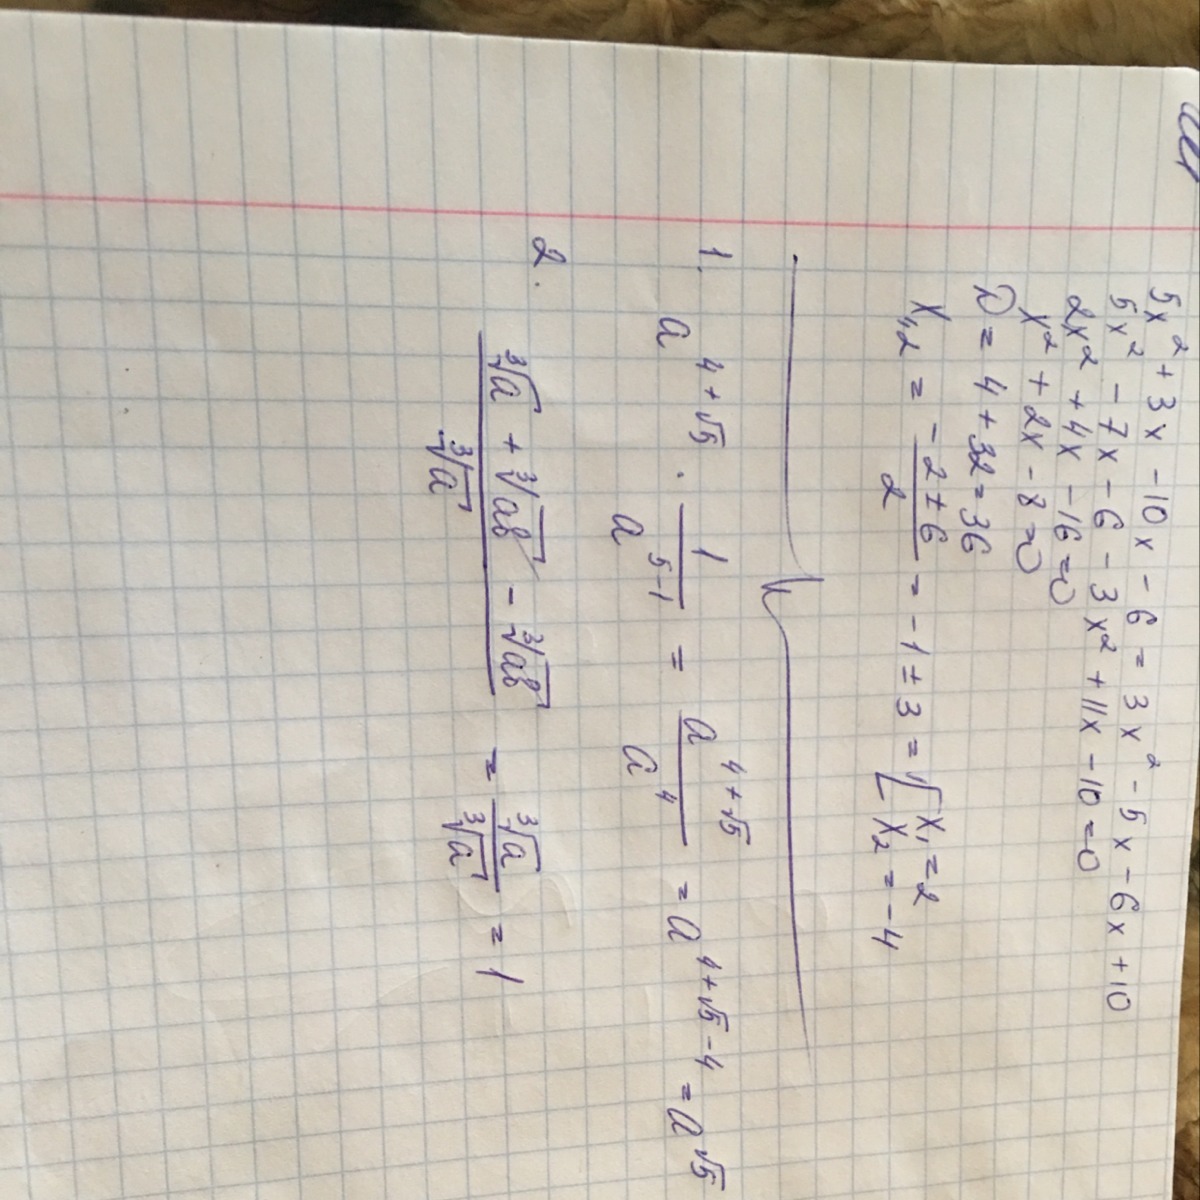 5x² + 3x - 10x - 6 = 3x² - 5x - 6x + 10
5x² - 7x - 6 - 3x² + 11x - 10 = 0
2x² + 4x - 16 = 0
x² + 2x - 8 = 0
D = 4 + 32 = 36
x₁,₂ = (-2 ± 6)/2 = -1 ± 3 = [x₁ = 2
[x₂ = -4
1. a^(4+√5) · 1/a^(5-1) = a^(4+√5)/a^4 = a^(4+√5-4) = a^√5
2. (∛a + ∛ab - ∛ab)/∛a = ∛a/∛a = 1